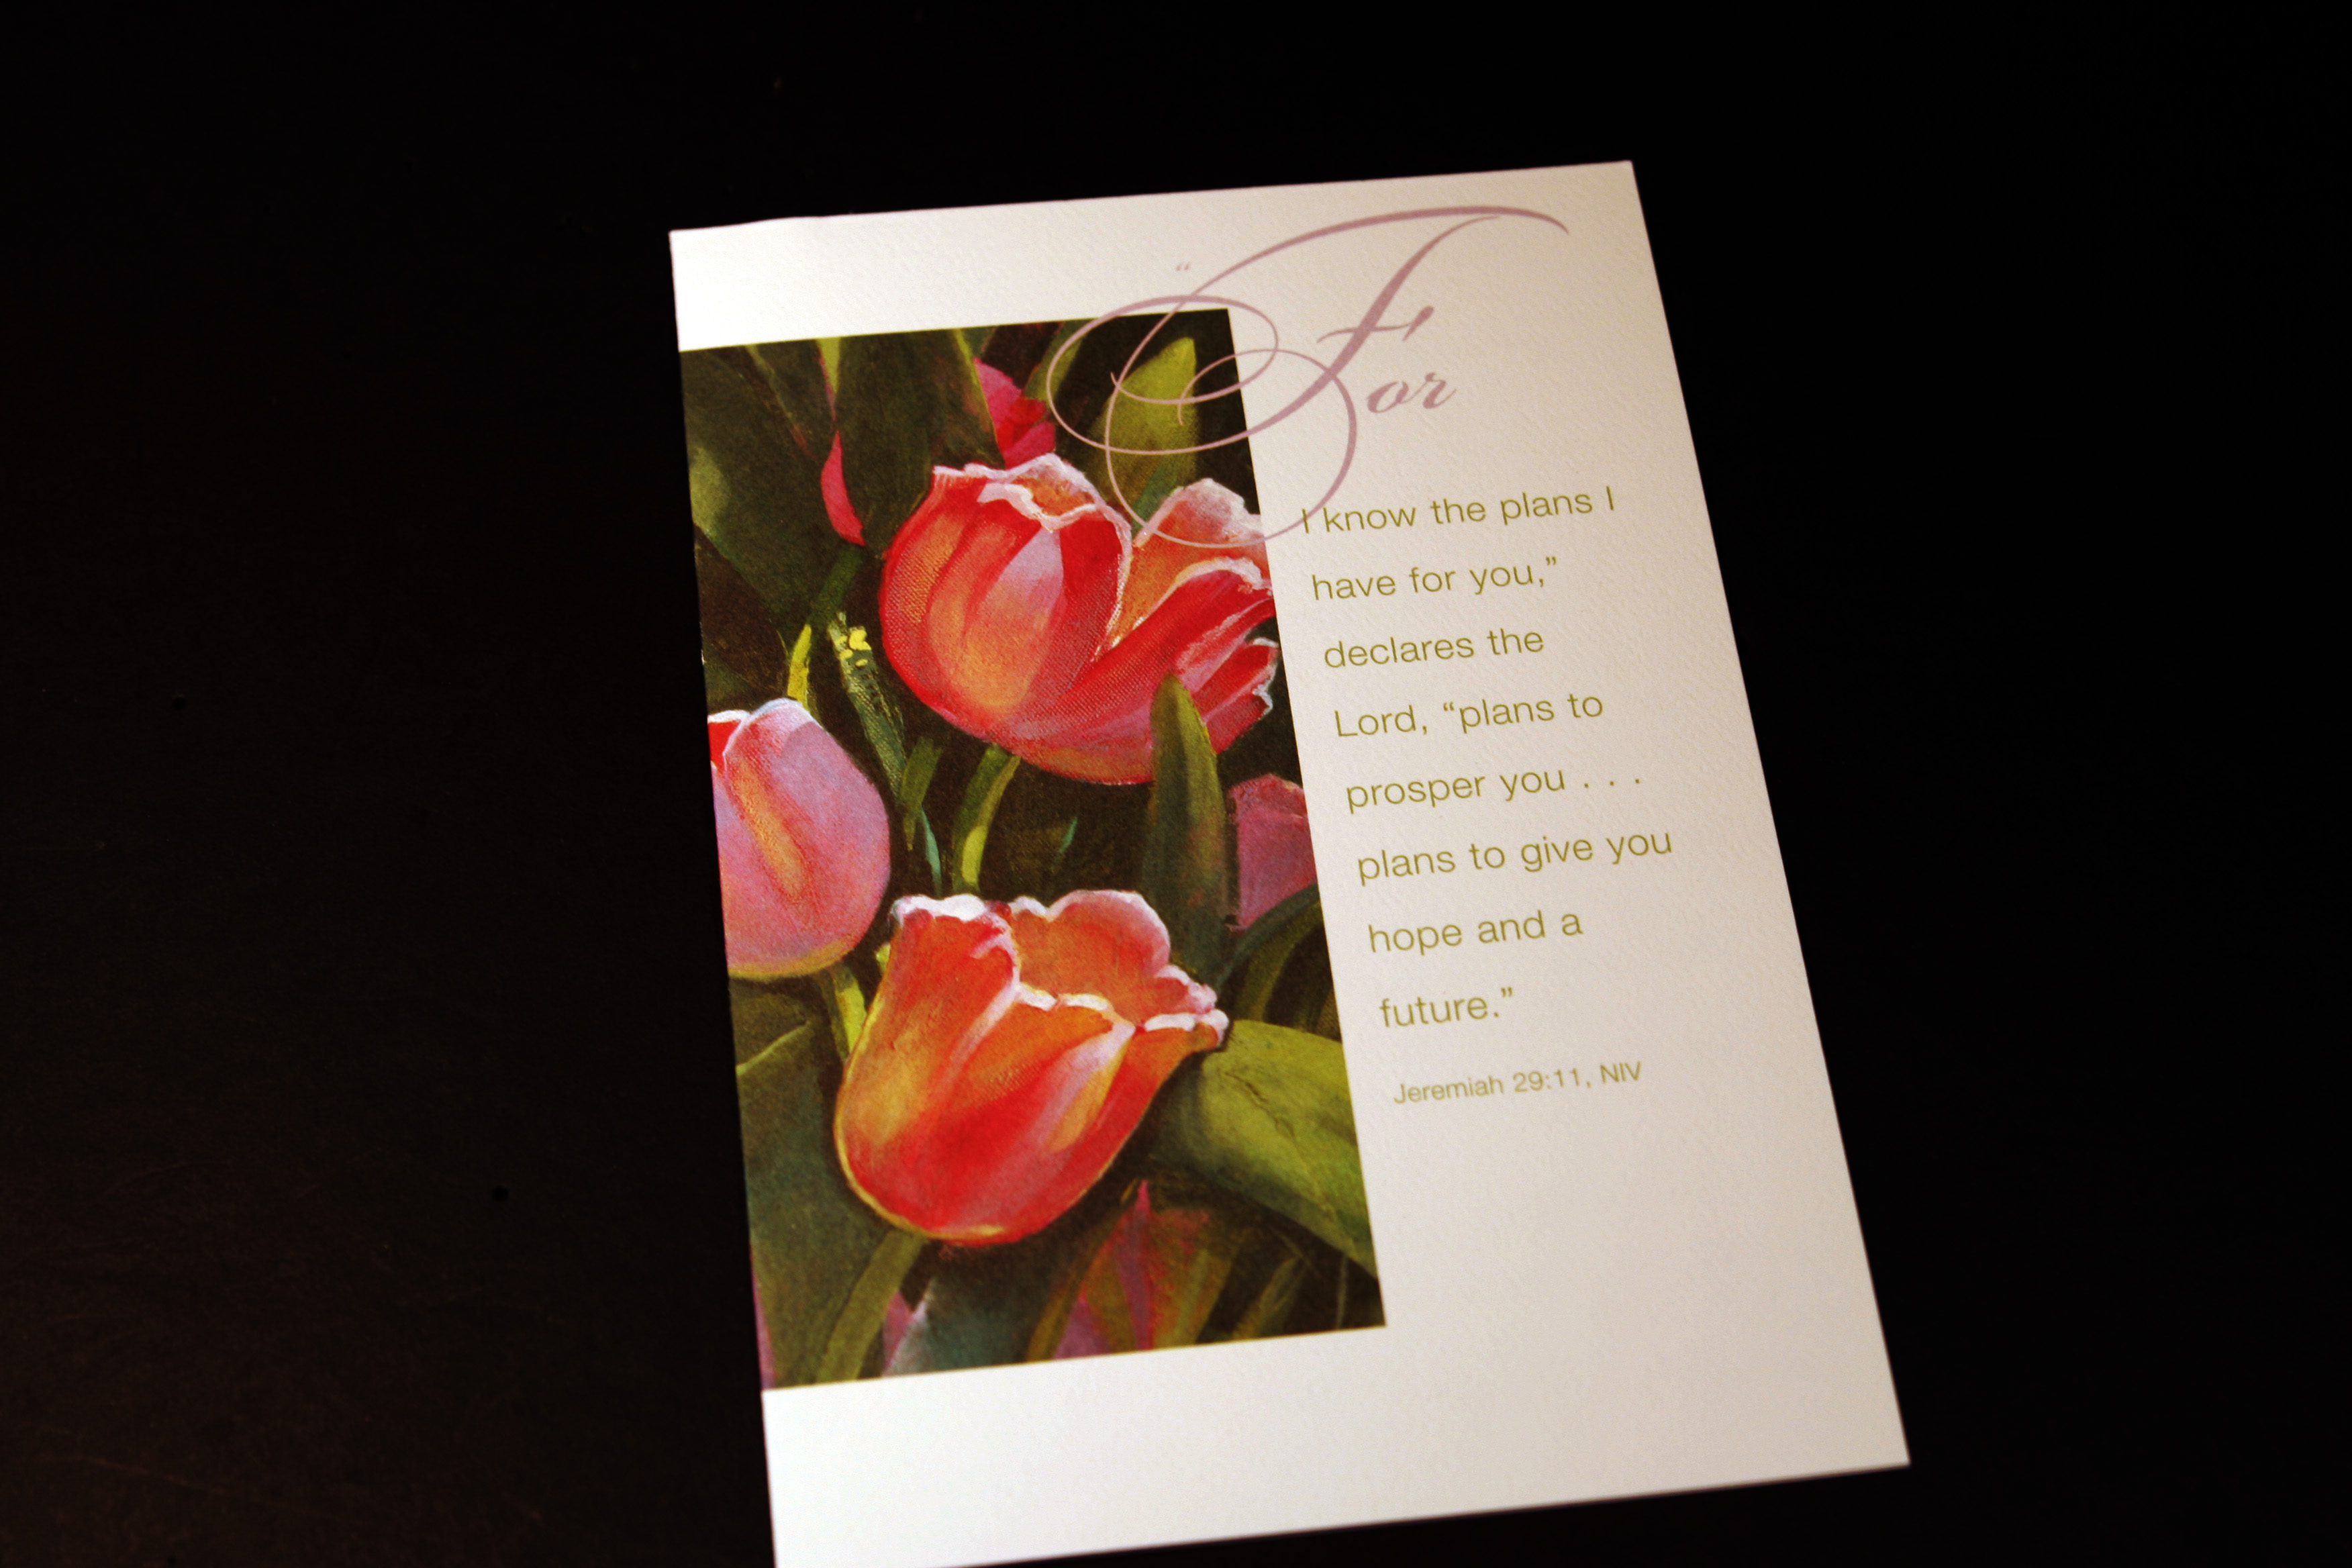 “For
I know the plans I
have for you,”
declares the
Lord, “plans to
prosper you . . .
plans to give you
hope and a
future.”
Jeremiah 29:11, NIV